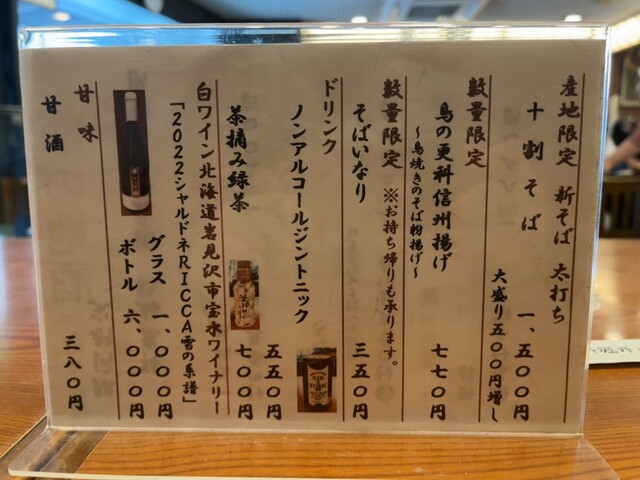 産地限定 新そば 太打ち
十割そば 一、五〇〇円
大盛り五〇〇円増し
数量限定
鳥の更科信州揚げ 七七〇円
～鳥焼きのそば粉揚げ～
数量限定 ※お持ち帰りも承ります。
そばいなり 三五〇円
ドリンク
ノンアルコールジントニック 五五〇円
茶摘み緑茶 七〇〇円
白ワイン北海道岩見沢市宝水ワイナリー
「2022シャルドネRICCA雪の系譜」
グラス 一、〇〇〇円
ボトル 六、〇〇〇円
甘味
甘酒 三八〇円